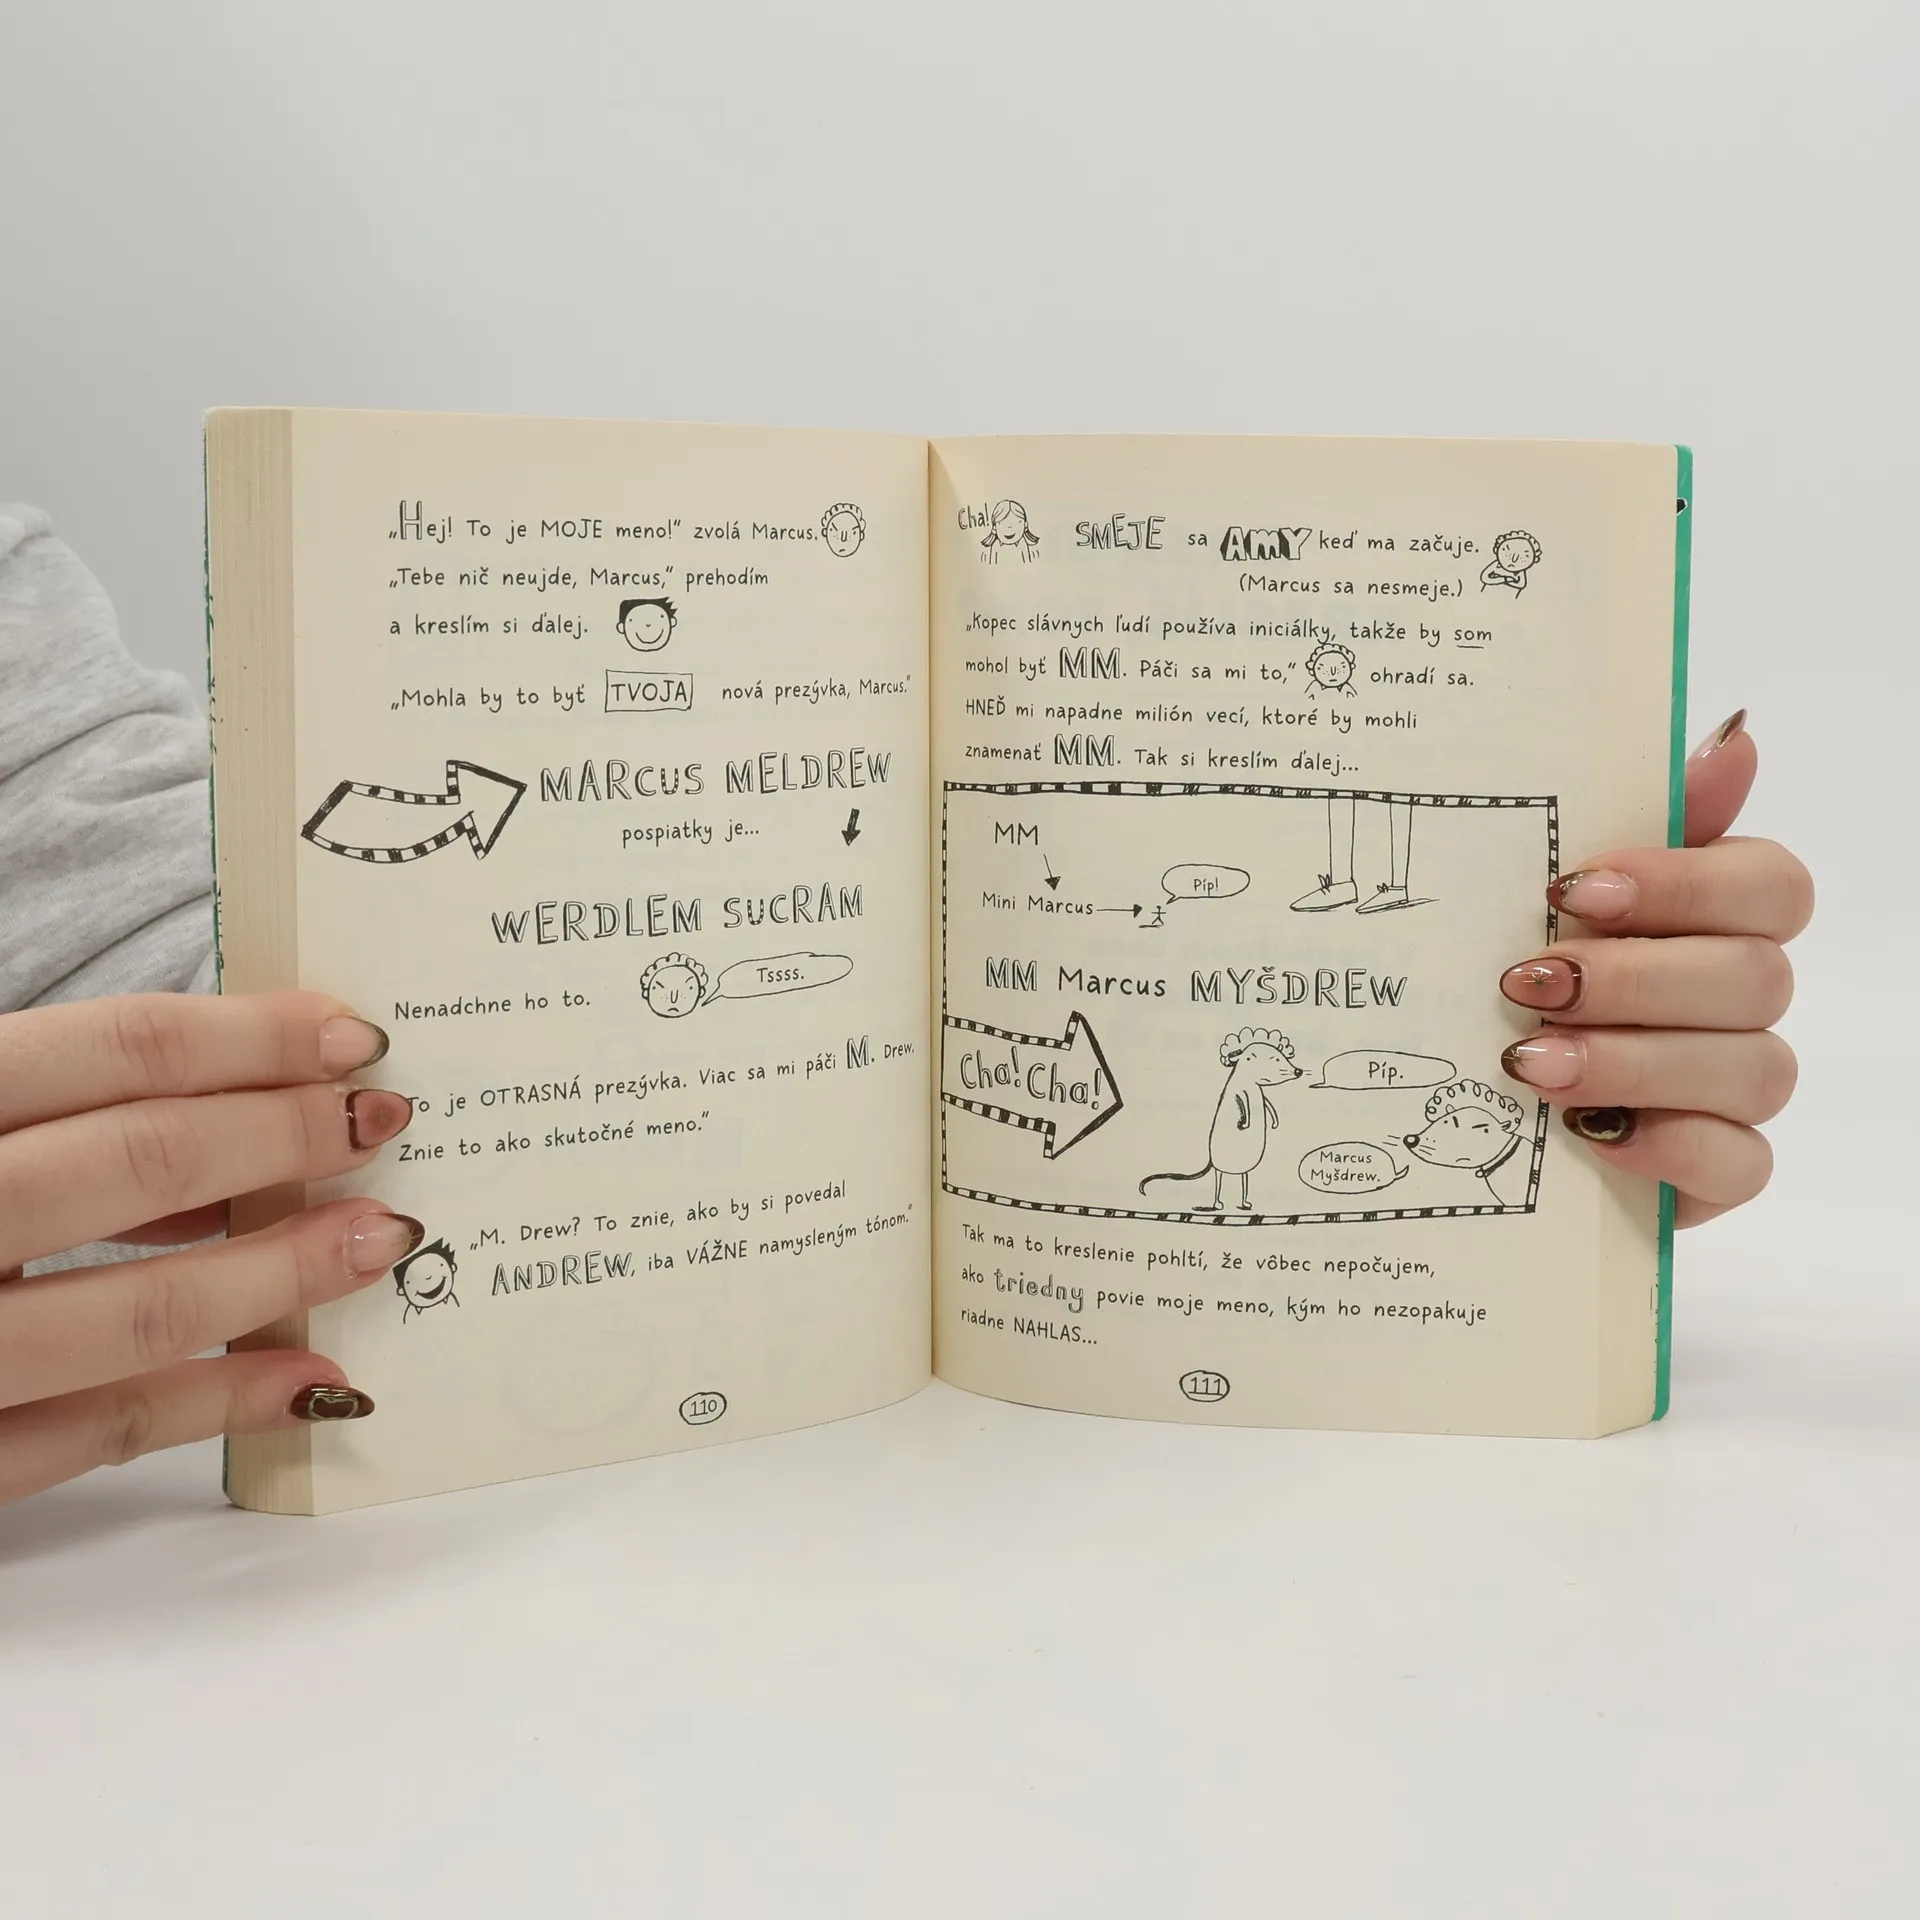 „Hej! To je MOJE meno!“ zvolá Marcus.
„Tebe nič neujde, Marcus,“ prehodím
a kreslím si ďalej.
„Mohla by to byť TVOJA nová prezývka, Marcus.“
MARCUS MELDREW
pospiatky je...
WERDLEM SUCRAM
Tssss.
Nenadchne ho to.
To je OTRASNÁ prezývka. Viac sa mi páči M. Drew.
Znie to ako skutočné meno.“
„M. Drew? To znie, ako by si povedal
ANDREW, iba VÁŽNE namysleným tónom.“
110
Cha!
SMEJE sa AMY keď ma začuje.
(Marcus sa nesmeje.)
„Kopec slávnych ľudí používa iniciálky, takže by som
mohol byť MM. Páči sa mi to,“ ohradí sa.
HNEĎ mi napadne milión vecí, ktoré by mohli
znamenať MM. Tak si kreslím ďalej...
MM
Píp!
Mini Marcus
MM Marcus MYŠDREW
Cha! Cha!
Píp.
Marcus
Myšdrew.
Tak ma to kreslenie pohltí, že vôbec nepočujem,
ako triedny povie moje meno, kým ho nezopakuje
riadne NAHLAS...
111